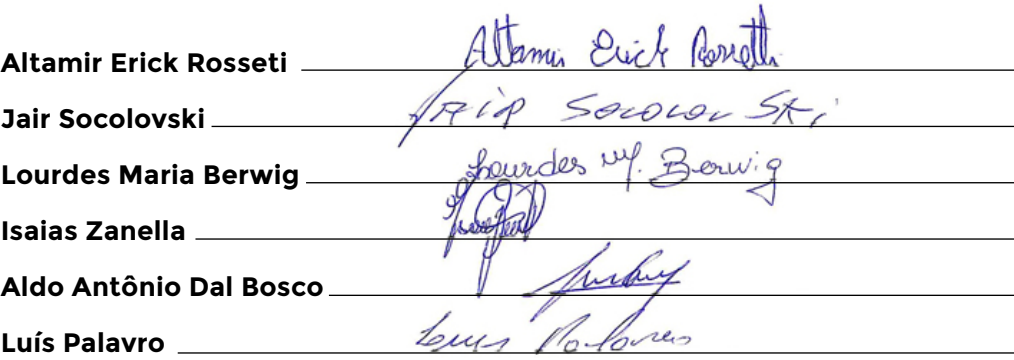 Altamir Erick Rosseti Altamir Erick Rossetti
Jair Socolovski Jair Socolovski
Lourdes Maria Berwig Lourdes M. Berwig
Isaias Zanella
Aldo Antônio Dal Bosco
Luís Palavro Luis Palavro